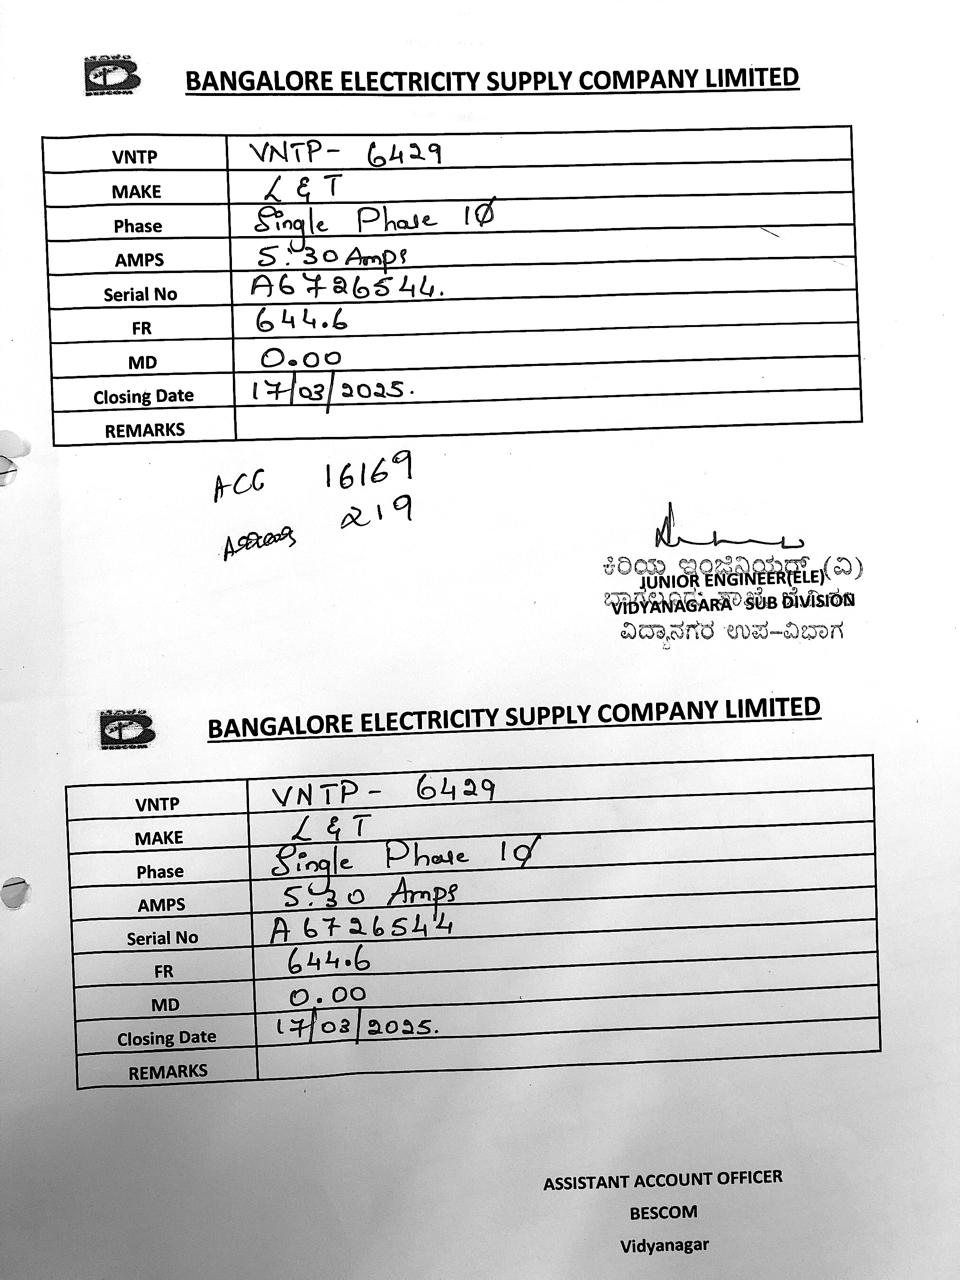 ಬೆವಿಕಂ
BESCOM
BANGALORE ELECTRICITY SUPPLY COMPANY LIMITED
VNTP VNTP- 6429
MAKE L & T
Phase Single Phase 1Ø
AMPS 5-30 Amps
Serial No A6726544.
FR 644.6
MD 0.00
Closing Date 17/03/2025.
REMARKS
ACG 16169
219
ಕಿರಿಯ ಇಂಜಿನಿಯರ್ (ವಿ)
JUNIOR ENGINEER(ELE)
VIDYANAGARA SUB DIVISION
ವಿದ್ಯಾನಗರ ಉಪ-ವಿಭಾಗ
BESCOM
BANGALORE ELECTRICITY SUPPLY COMPANY LIMITED
VNTP VNTP- 6429
MAKE L & T
Phase Single Phase 1Ø
AMPS 5-30 Amps
Serial No A6726544
FR 644.6
MD 0.00
Closing Date 17/03/2025.
REMARKS
ASSISTANT ACCOUNT OFFICER
BESCOM
Vidyanagar